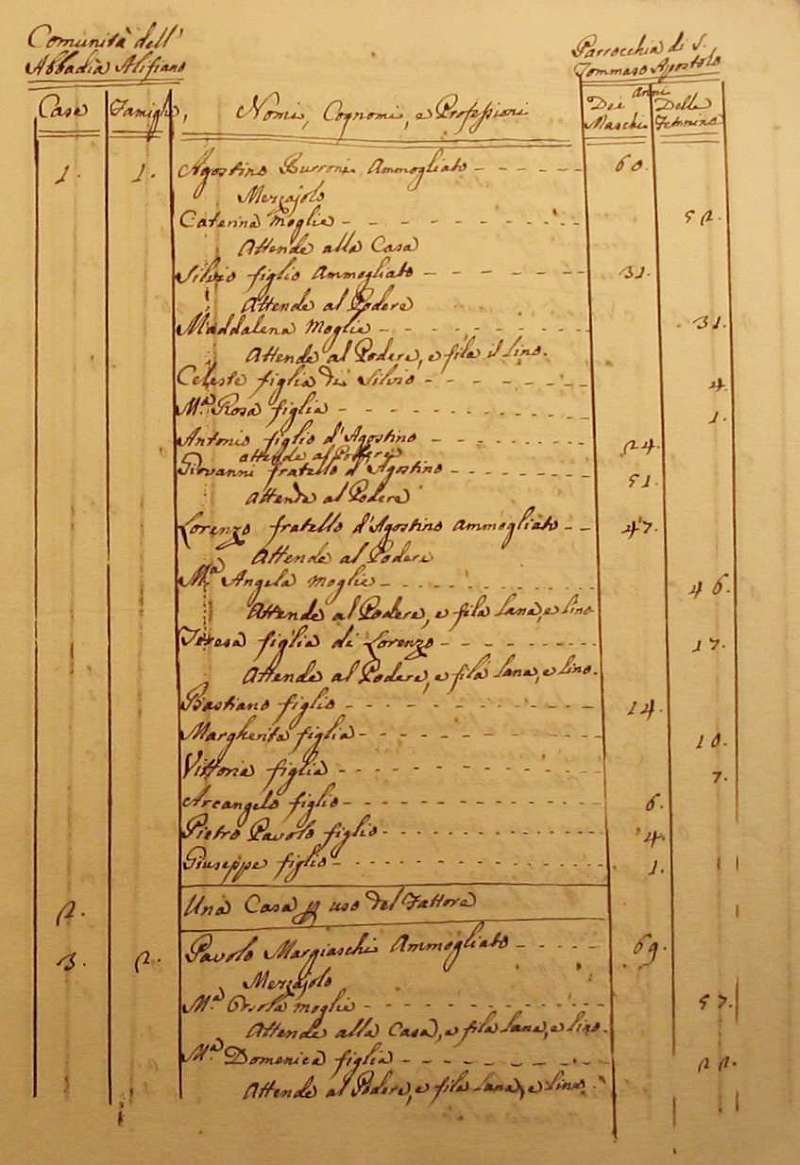 Comunità dell'
Abbadia Alfiano
Parrocchia di S.
Tommaso Apostolo
Case Famiglie, Nomi, Cognomi, e Professioni Anni
Dei Maschi Delle Femmine
1. 1. Agostino Burroni Ammogliato 60.
Mezzajolo
Caterina Moglie 52.
Attende alla Casa
Silvio figlio Ammogliato 31.
Attende al Podere
Maddalena Moglie 31.
Attende al Podere, e fila il lino.
Celeste figlia di Silvio 4.
M.a Rosa figlia 1.
Antonio figlio d'Agostino 24.
attende al Podere
Giovanni fratello d'Agostino 51.
Attende al Podere
Lorenzo fratello d'Agostino Ammogliato 47.
Attende al Podere
M.a Angela Moglie 46.
Attende al Podere, e fila lana, e lino
Teresa figlia di Lorenzo 17.
Attende al Podere, e fila lana, e lino.
Bastiano figlio 14.
Margherita figlia 10.
Vittoria figlia 7.
Arcangelo figlio 6.
Pietro Pavolo figlio 4.
Giuseppe figlio 1.
2. Una Casa p uso del Fattore
3. 2. Pavolo Margiaschi Ammogliato 69.
Mezzajolo
M.a moglie 57.
Attende alla Casa, e fila lana, e lino.
M.a Domenica figlia 22.
Attende al Podere, e fila lana, e lino.